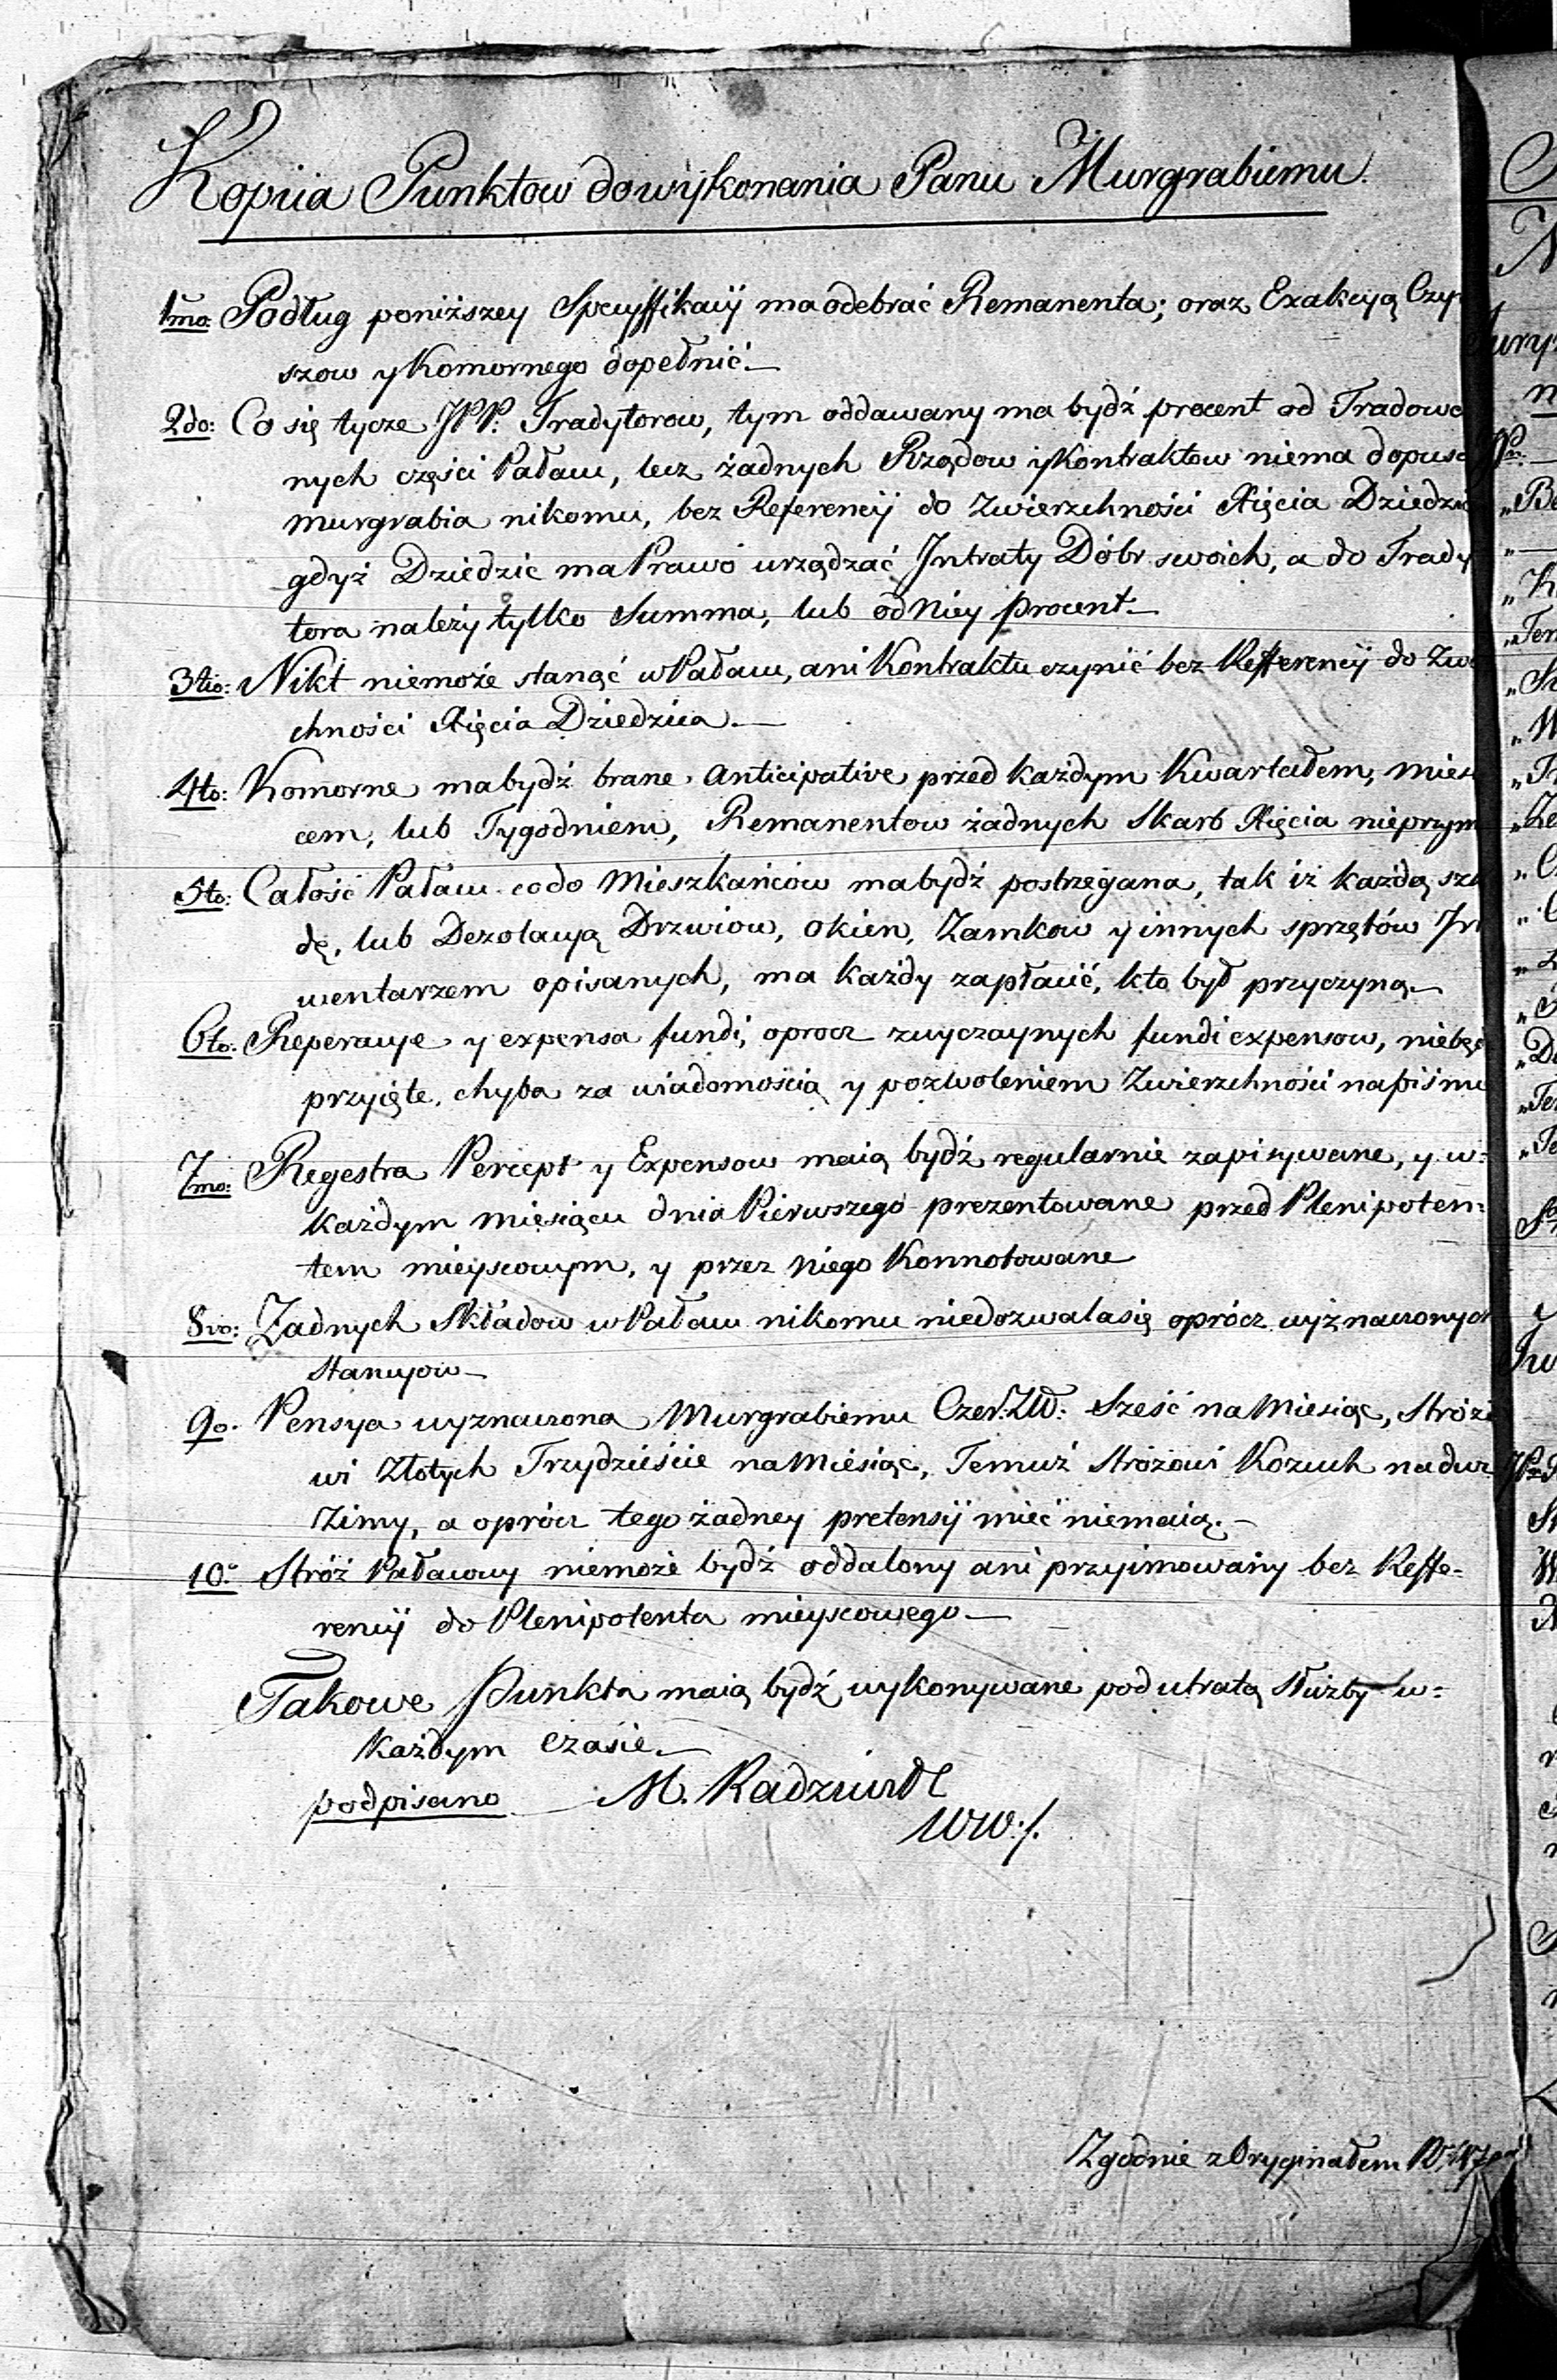 Kopiia Punktow do wÿkonania Panu Murgrabiemu.
1mo. Podług poniższey Specyffikacÿ ma odebrać Remanenta; oraz Exakcyą Czyn
szow y Komornego dopełnić.—
2do: Co się tycze JPP: Tradytorow, tym oddawany ma bydź procent od Tradowa
nych części Pałacu, lecz żadnych Rządow y Kontraktow niema dopusc
murgrabia nikomu, bez Referencÿ do Zwierzchności Xięcia Dziedzi
gdyż Dziedzic ma Prawo urządzać Jntraty Dóbr swoich, a do Trady
tora należy tylko Summa, lub od Niey procent.—
3tio: Nikt niemoże stanąć w Pałacu, ani Kontraktu czynić bez Refferencÿ do Zwi
chności Xięcia Dziedzica.—
4to: Komorne ma bydź brane Anticipative przed każdym Kwartałem, mies
cem, lub Tygodniem, Remanentow żadnych Skarb Xięcia nieprzym
5to: Całość Pałacu co do Mieszkańcow ma bydź postrzegana, tak iż każdą szk
dę, lub Dezolacyą Drzwiow, okien, Zamkow y innych sprzętów Jn
wentarzem opisanych, ma każdy zapłacić, kto był przyczyną.—
6to. Reperacye y expensa fundi, oprocz zwyczaynych fundi expensow, niebęd
przyięte, chyba za wiadomością y pozwoleniem Zwierzchności na piśmie
7mo: Regestra Percept y Expensow maią bydź regularnie zapisywane, y w=
każdym miesiącu dnia Pierwszego prezentowane przed Plenipoten=
tem mieyscowym, y przez niego Konnotowane
8vo: Żadnych Składow w Pałacu nikomu niedozwala się oprócz wyznaczonych
stancyow—
9o. Pensya wyznaczona Murgrabiemu Czer: Zł: Sześć na Miesiąc, Stróżo
wi Złotych Trzydzieście na Miesiąc, Temuż Stróżowi Kożuch na dwie
Zimy, a oprócz tego żadney pretensÿ mieć niemaią.—
10.o Stróż Pałacowy niemoże bydź oddalony ani przyimowany bez Reffe=
rencÿ do Plenipotenta mieyscowego—
Takowe Punkta maią bydź wykonywane pod utratą Służby w=
każdym czasie.—
podpisano M. Radziwiłł
WW:/.
Zgodnie z Oryginałem